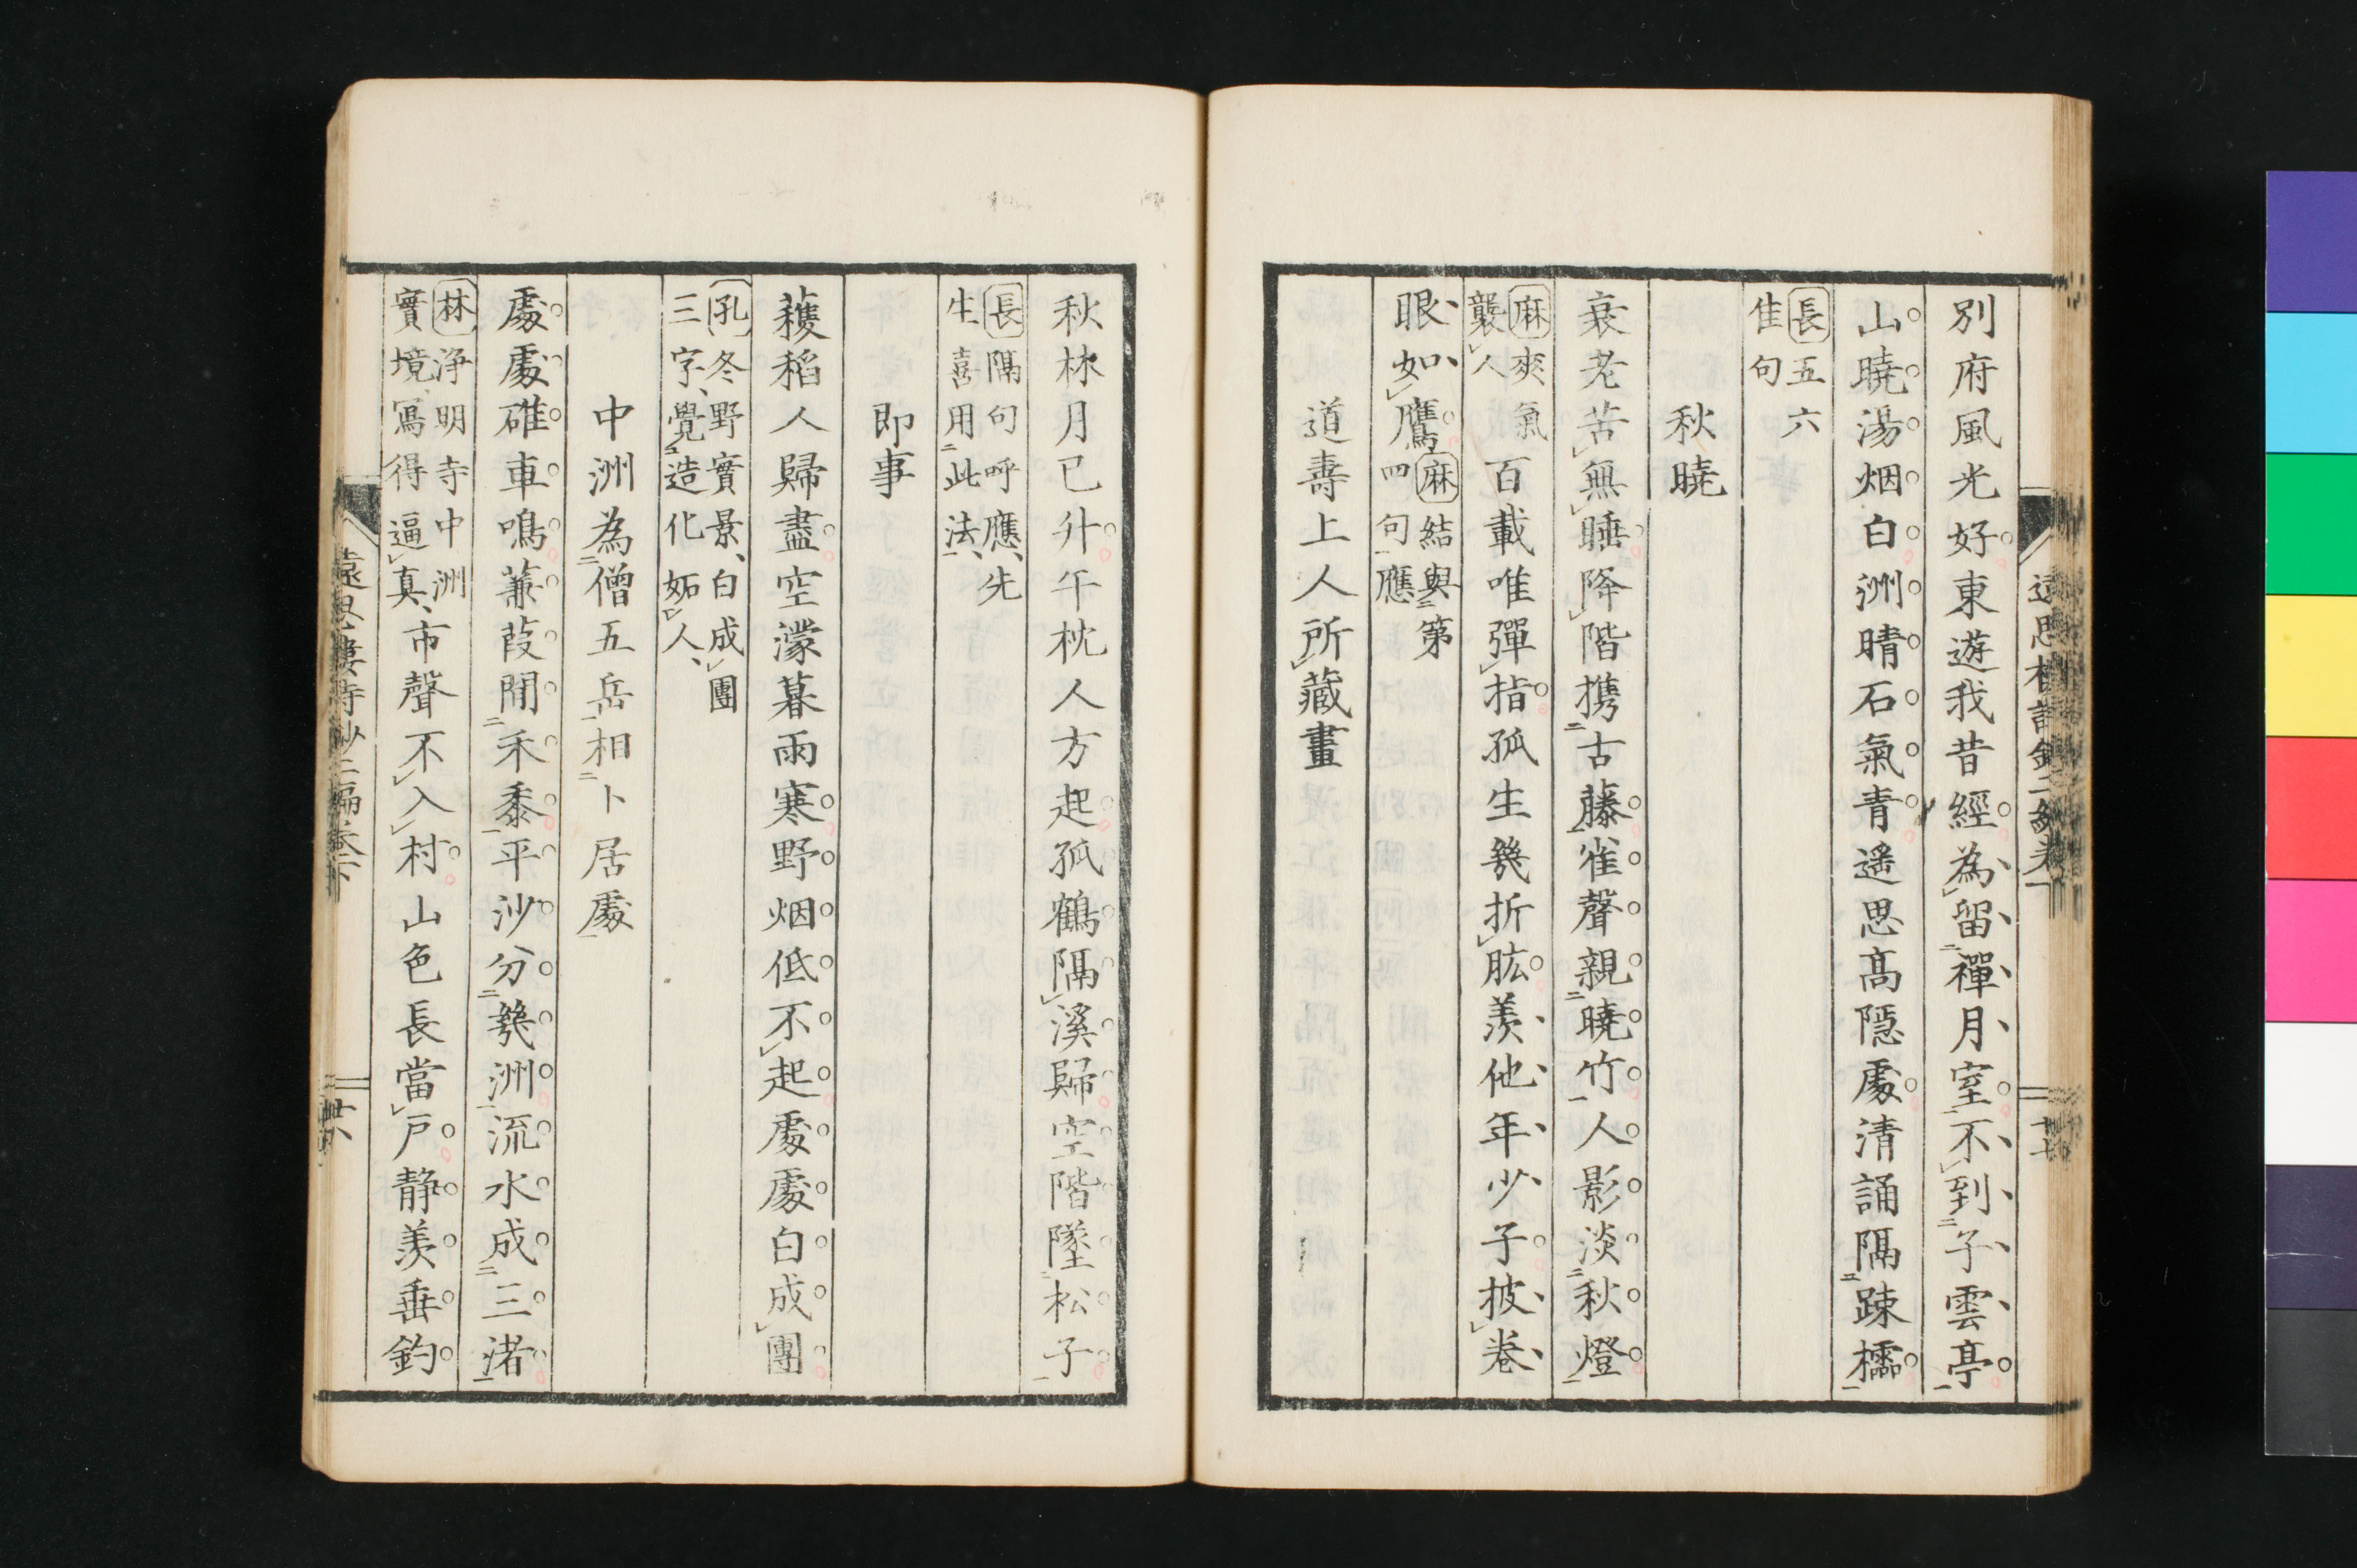 別府風光好東遊我昔經為留禪月室不到子雲亭
山曉湯烟白洲晴石氣青遙思高隱處清誦隔疎櫺
長五六
佳句
秋曉
衰老苦無睡降階携古藤雀聲親曉竹人影淡秋燈
麻爽氣
襲人
百載唯彈指孤生幾折肱羨他年少子披卷
眼如鷹
麻結與第
四句應
道壽上人所藏畫
秋林月已升午枕人方起孤鶴隔溪歸空階墜松子
長隔句呼應先
生喜用此法
即事
穫稻人歸盡空濛暮雨寒野烟低不起處處白成團
孔冬野實景白成團
三字覺造化妬人
中洲為僧五岳相卜居處
處處碓車鳴蒹葭間禾黍平沙分幾洲流水成三渚
林浄明寺中洲
實境寫得逼真
市聲不入村山色長當戸靜羨垂釣
遠思樓詩鈔二編卷下